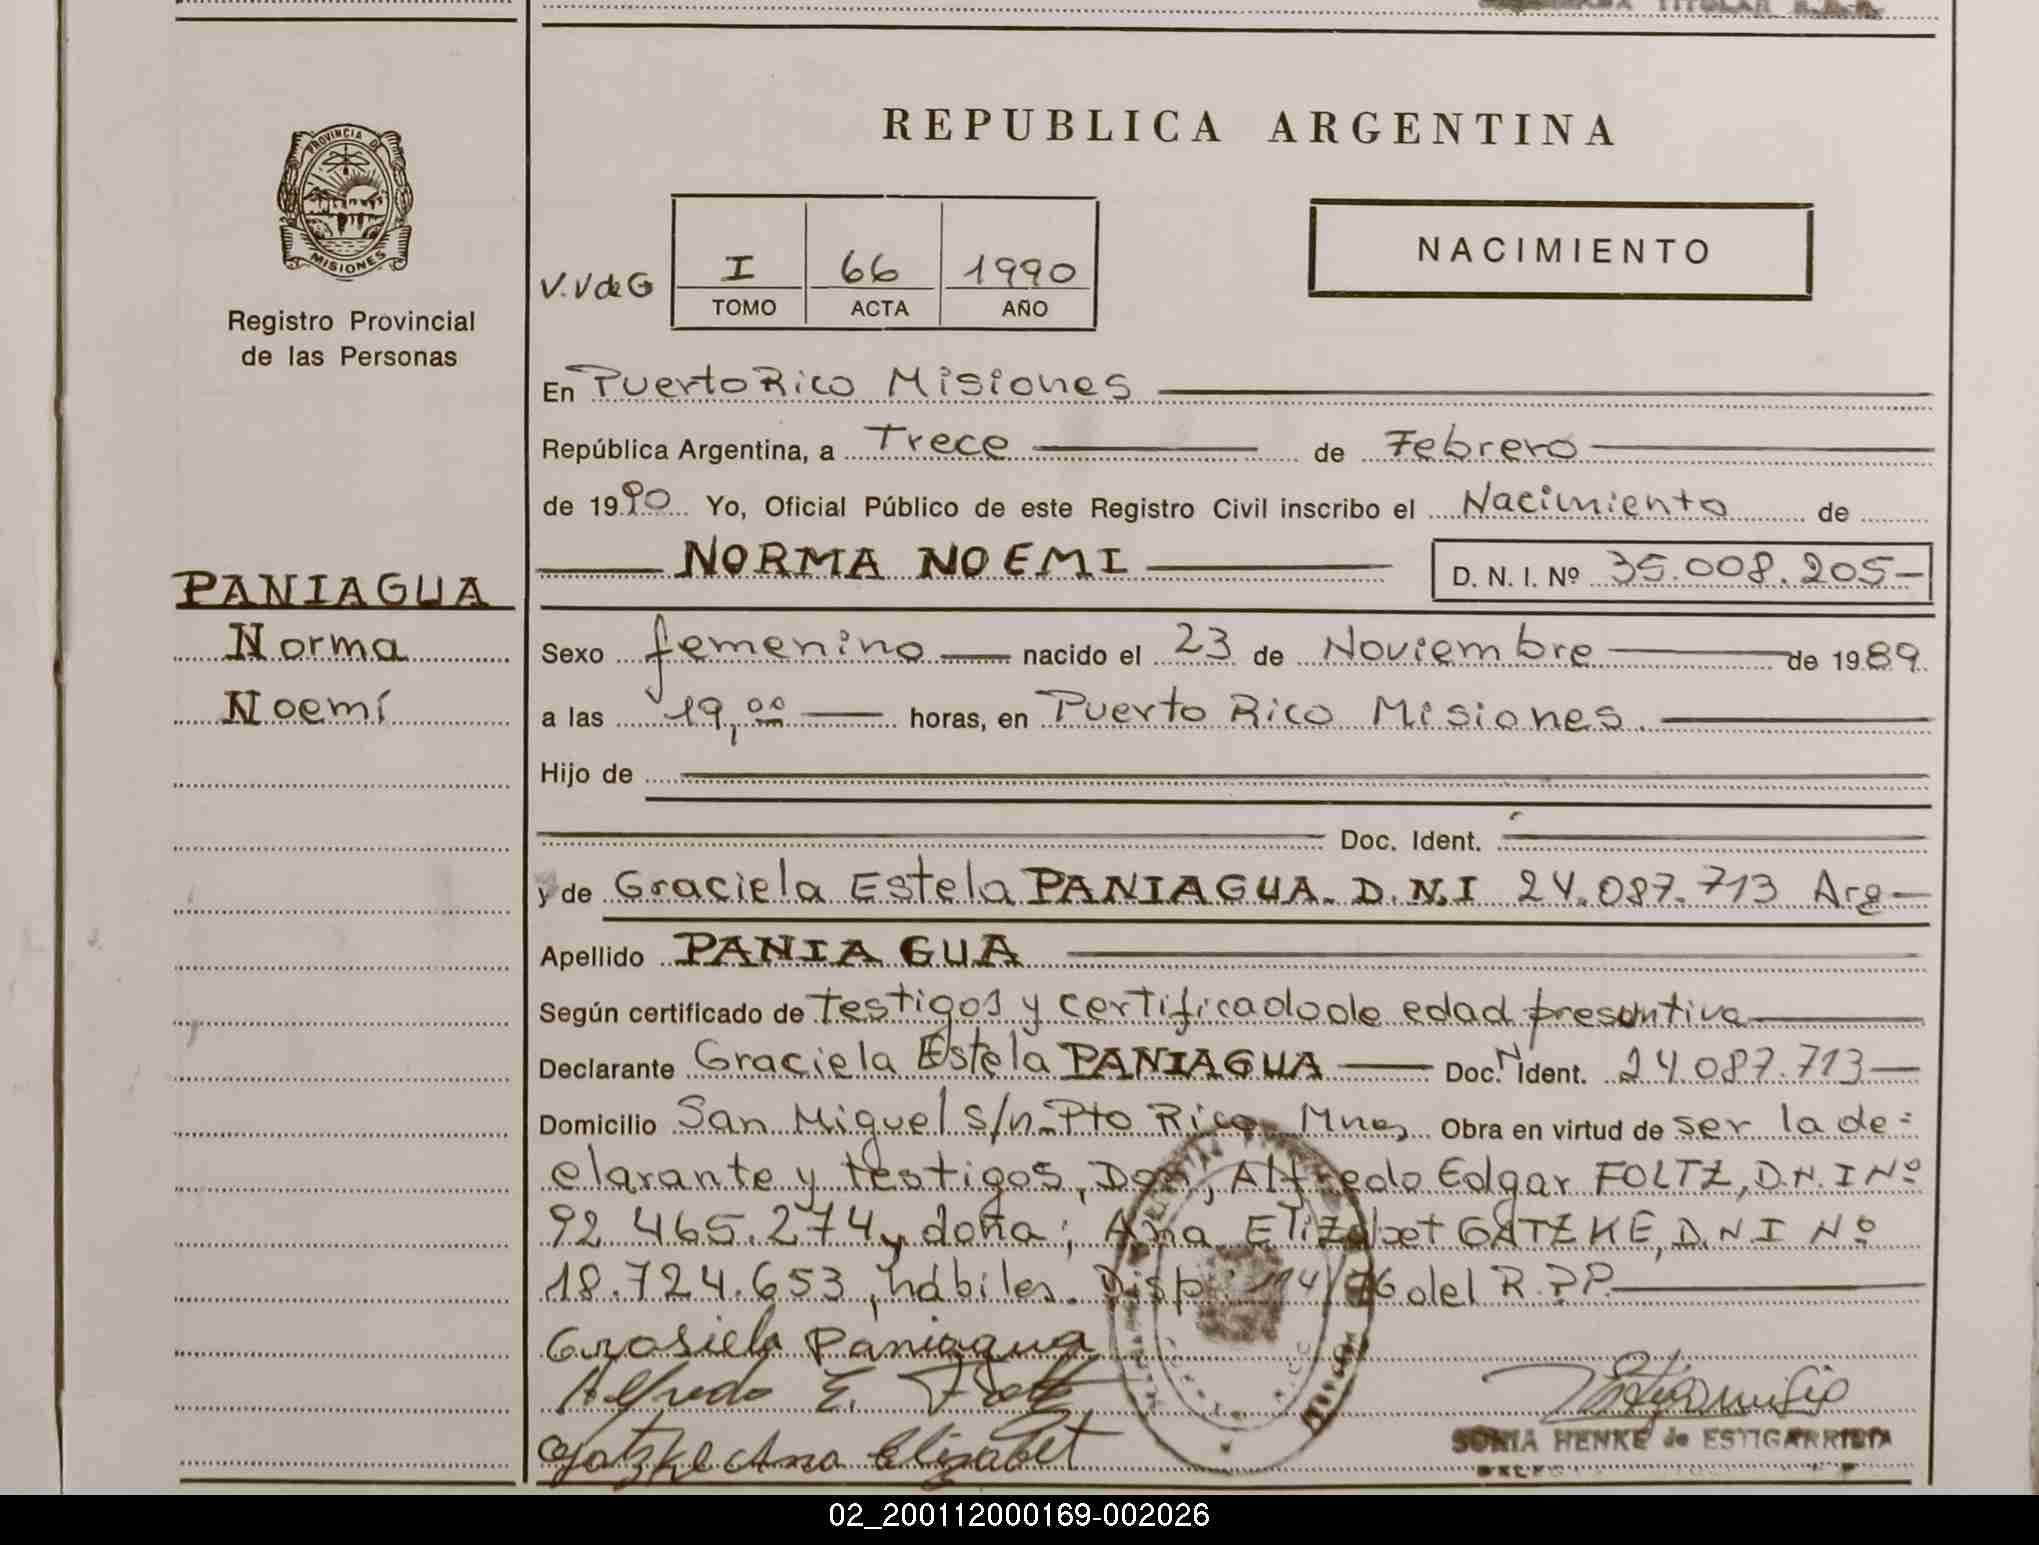 REPUBLICA ARGENTINA
PROVINCIA D
MISIONES
Registro Provincial
de las Personas
V.V de G
I 66 1990
TOMO ACTA AÑO
NACIMIENTO
En Puerto Rico Misiones
República Argentina, a Trece de Febrero
de 1990 Yo, Oficial Público de este Registro Civil inscribo el Nacimiento de
NORMA NOEMI D. N. I. Nº 35.008.205-
PANIAGUA
Norma
Noemí
Sexo femenino nacido el 23 de Noviembre de 1989
a las 19,00 horas, en Puerto Rico Misiones.
Hijo de
Doc. Ident.
y de Graciela Estela PANIAGUA. D.N.I 24.087.713 Arg-
Apellido PANIAGUA
Según certificado de Testigos y certificado de edad presuntiva
Declarante Graciela Estela PANIAGUA Doc. N Ident. 24.087.713
Domicilio San Miguel s/n. Pto Rico Mnes Obra en virtud de ser la de=
clarante y testigos, Don, Alfredo Edgar FOLTZ, D.N.I Nº
92.465.274 y doña; Ana Elizabet GATZKE, D.N.I Nº
18.724.653, hábiles. Disp. 114/76 del R.P.P.
Grasiela Paniagua
Alfredo E. Foltz
Gatzke Ana Elizabet
SONIA HENKE de ESTIGARRIBIA
02_200112000169-002026